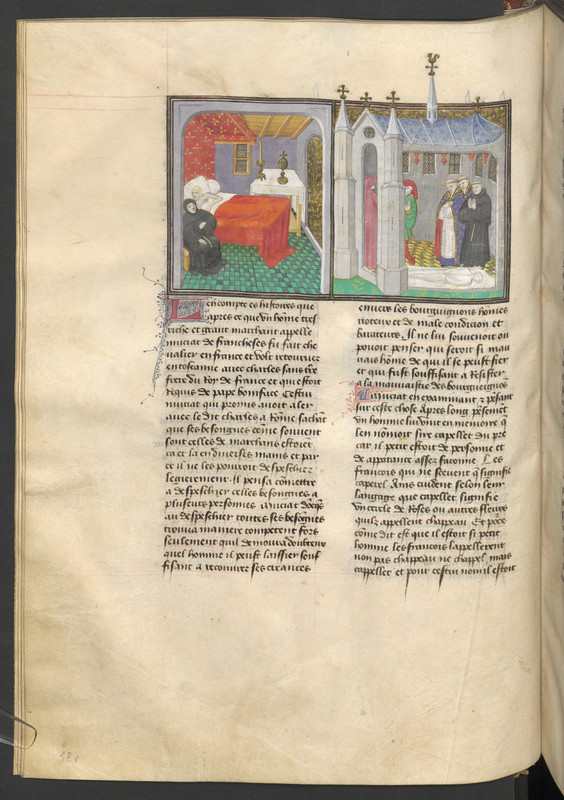 en compte es histoires que
apres ce que un homme tres
riche et grant marchant appelle
musciat de francheses fu fait che
ualier en france et vole retourner
en toscanne auec charles sans tre
frere du Roy de france et qui estoit
Requis de pape boniface Cestui
musciat qui promis auoit a ler
auec le dit charles a Romme sachant
que ses besongnes comme souuent
sont celles de marchans estoiet
ca et la en diuerses mains et par
ce il ne les pouoit despeschier
legierement Il pensa commettre
a despeschier celles besongnes a
plusieurs personnes musciat doncqs
au despeschier toutes ses besongnes
trouua maniere competent fors
seulement quil demoura
quel homme il peust laissier souf
fisant a recouurer ses creances
enuers les bourguignons hommes
rioteux et de male condicion et
barateurs Il ne lui souuenoit ou
pouoit penser qui seroit si mau
uais homme de qui il se peust fier
et qui fust souffisant a Resister
a la mauuaistie des bourguignons
musciat en examinant et pesant
sur ceste chose Apres long pensemet
un homme lui vint en memoire q
len nommoit sire cappellet du pre
car il petit estoit de personne et
de apparance assez faconne Les
francois qui ne scevent q signifie
caperel Ains cuident selon leur
langage que capellet signifie
un cercle de Roses ou autres fleurs
quilz appellent chappeau Et pource
comme dit est que il estoit si petit
homme les francois lappellerent
non pas chappeau ne chappel mais
cappellet et pour cestui nom il estoit
18v